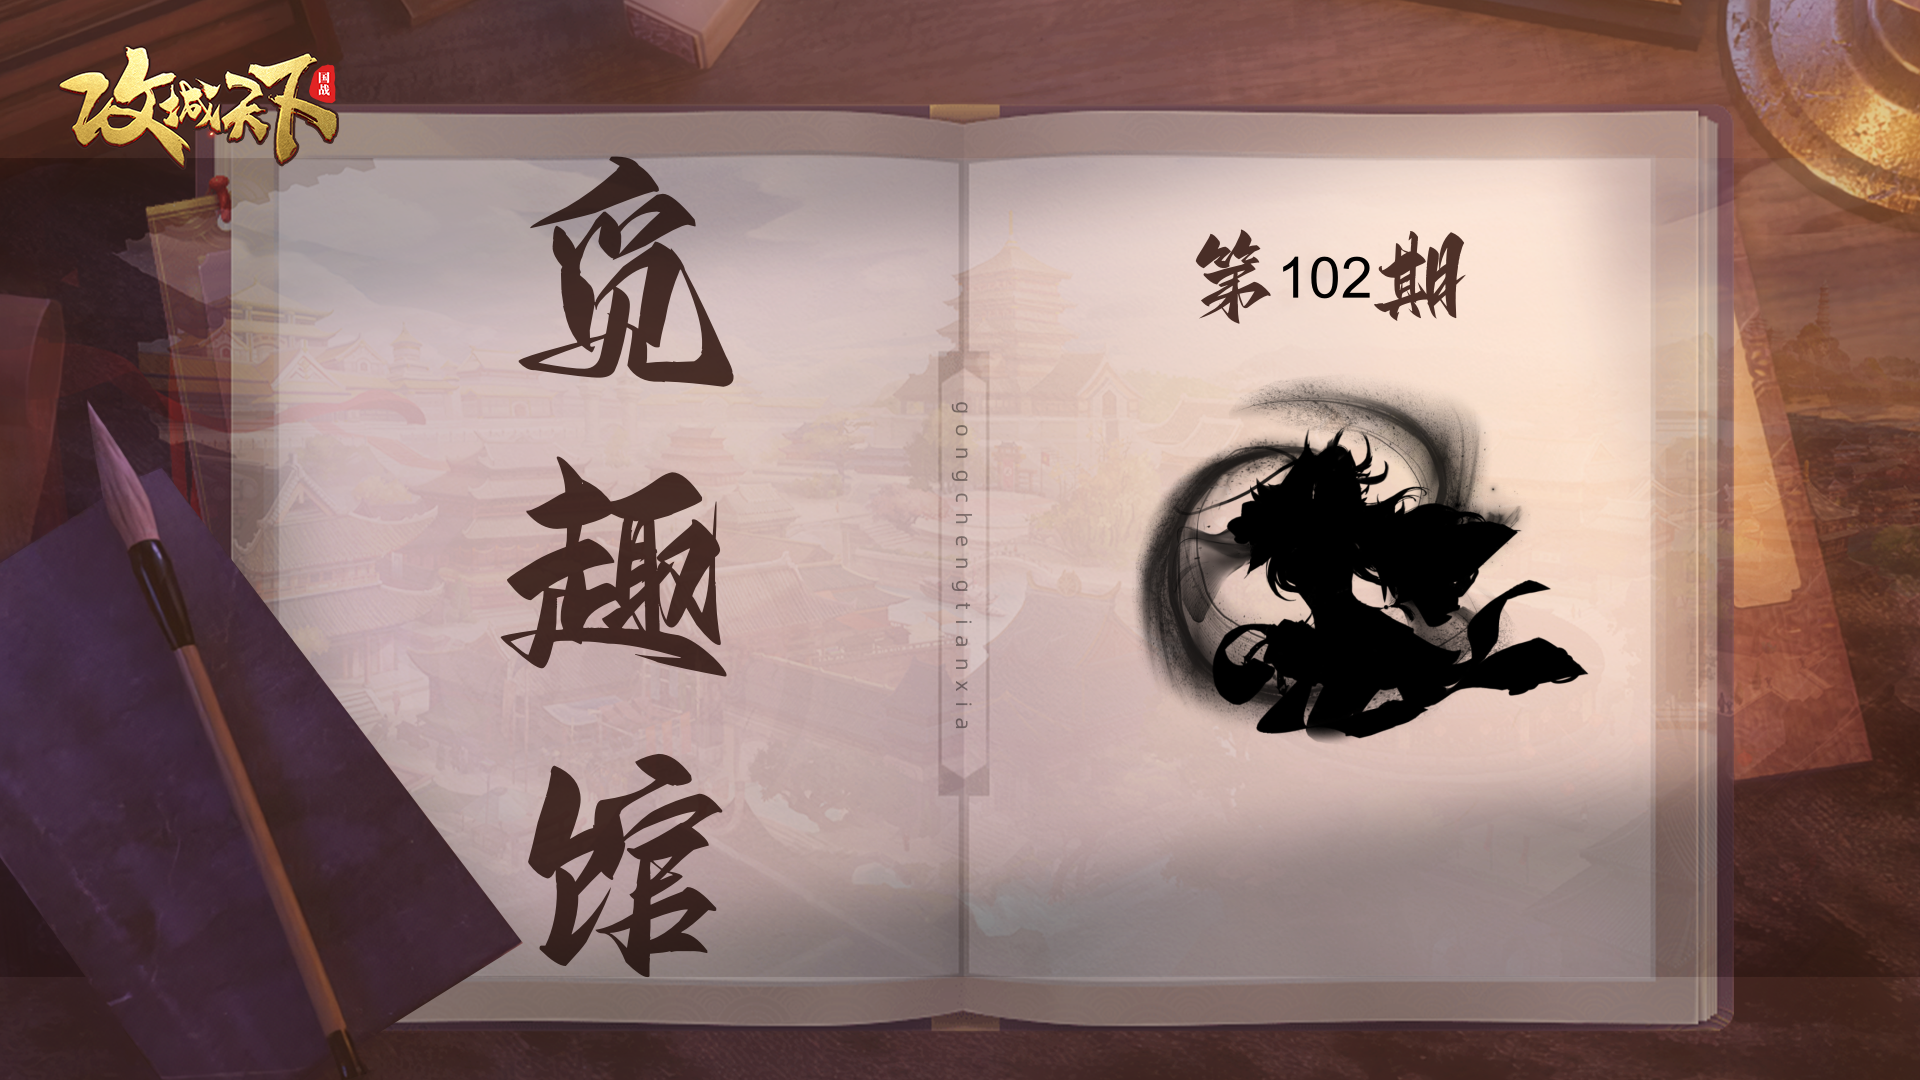 攻城天下
国战
觅趣馆
第102期
gongchengtianxia